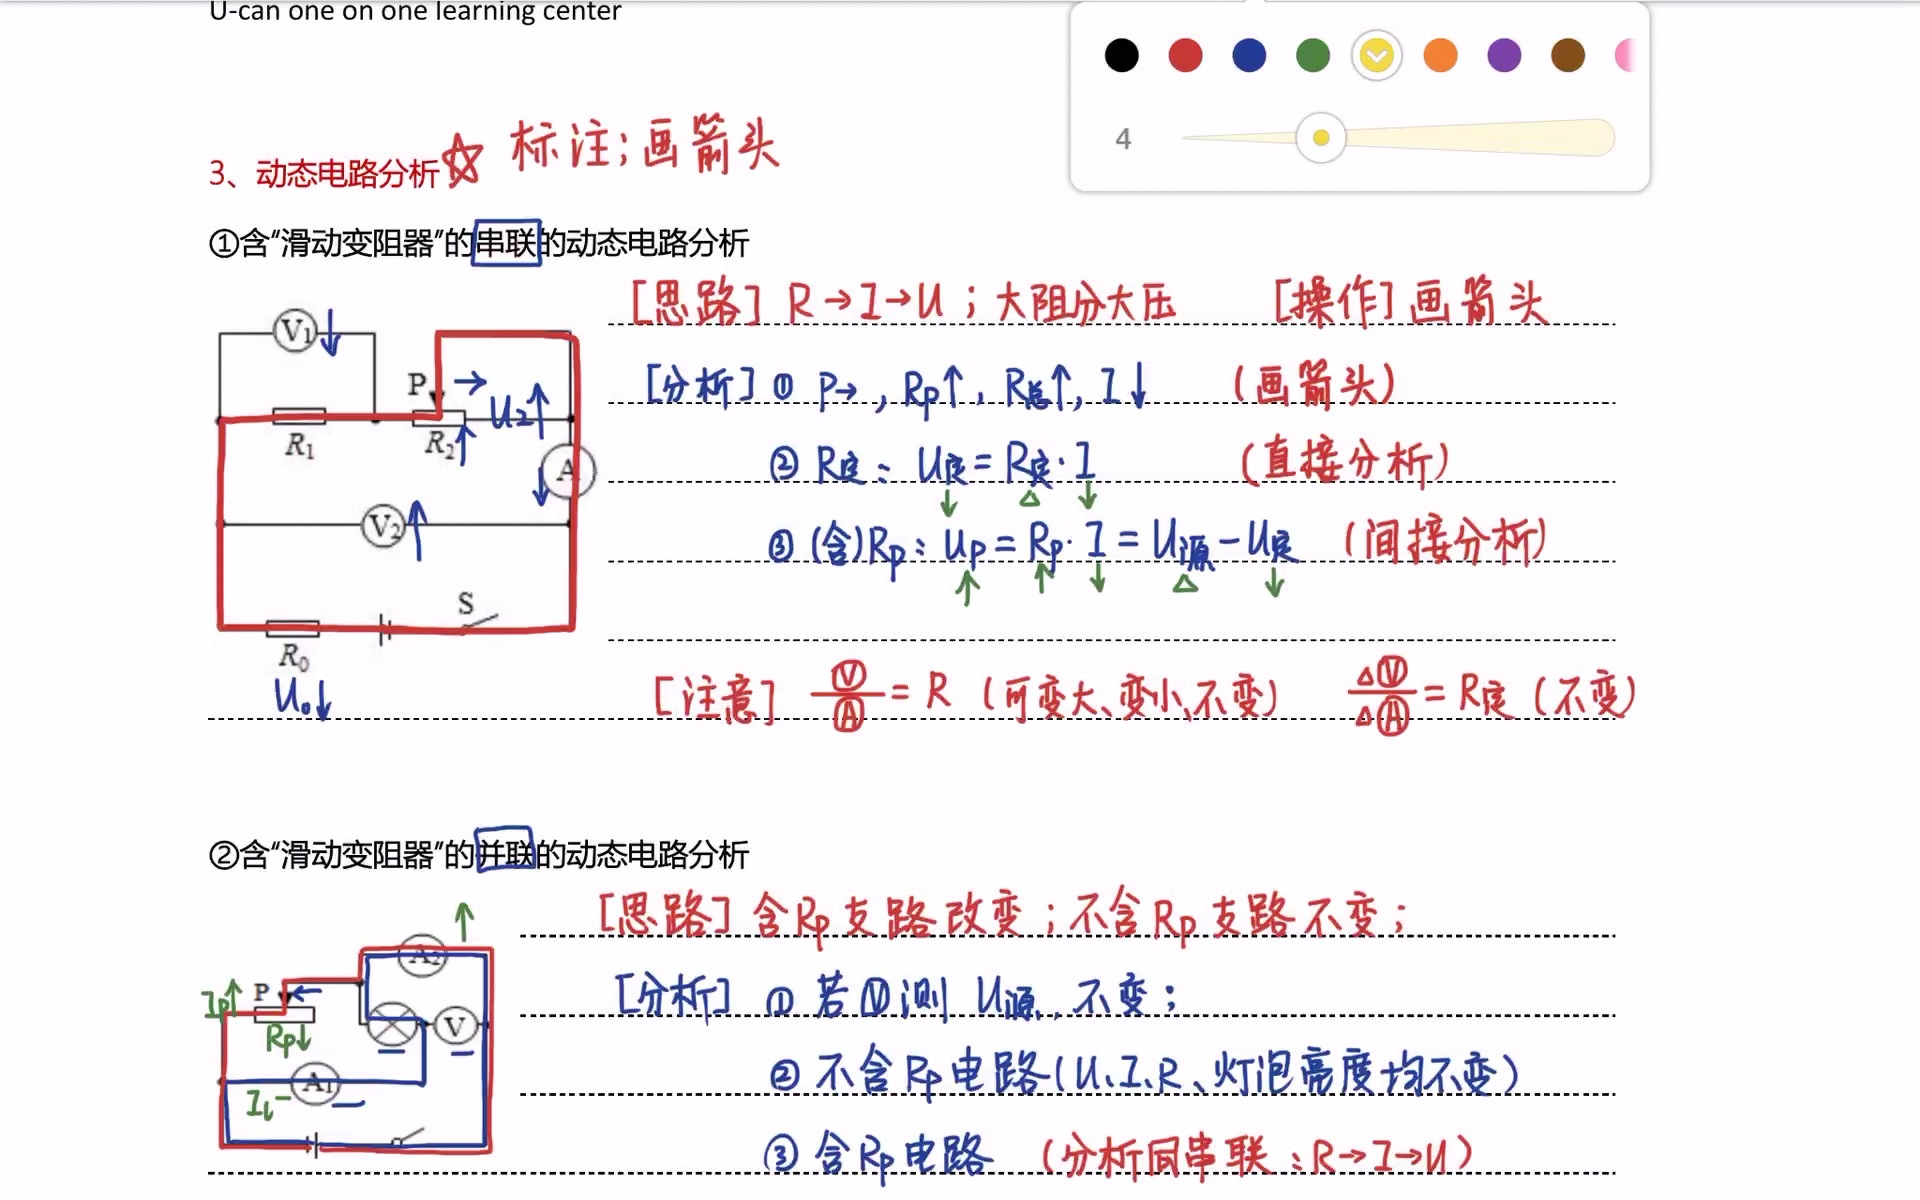 U-can one on one learning center
4
3、动态电路分析☆ 标注;画箭头
①含“滑动变阻器”的串联的动态电路分析
[思路] R→I→U;大阻分大压 [操作]画箭头
V1↓
P→
U2↑
R1
R2↑
A↓
V2↑
S
R0
U0↓
[分析] ① P→, Rp↑, R总↑, I↓ (画箭头)
② R定: U定=R定·I (直接分析)
↓ △ ↓
③ (含)Rp: Up=Rp·I=U源-U定 (间接分析)
↑ ↑ ↓ △ ↓
[注意] Ⓥ/Ⓐ=R (可变大、变小、不变) △Ⓥ/△Ⓐ=R定 (不变)
②含“滑动变阻器”的并联的动态电路分析
[思路] 含Rp支路改变;不含Rp支路不变;
A2↑
Ip↑
P←
Rp↓
V
A1
IL-
[分析] ① 若Ⓥ测U源,不变;
② 不含Rp电路(U、I、R、灯泡亮度均不变)
③ 含Rp电路 (分析同串联:R→I→U)